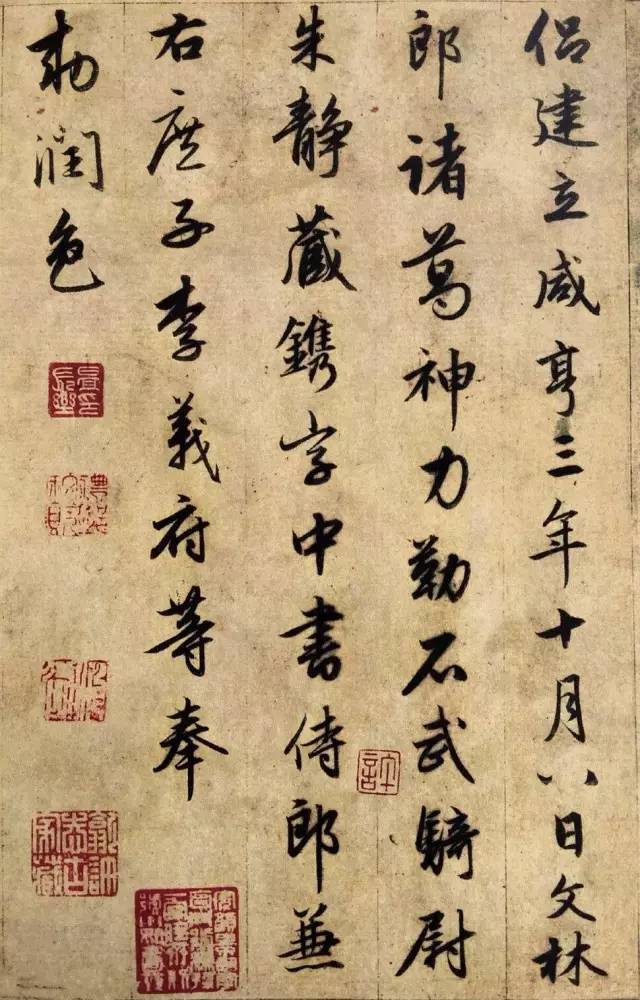 侣建立咸亨三年十月八日文林
郎诸葛神力勒石武骑尉
朱静藏鐫字中書侍郎兼
右庶子李義府等奉
勅潤色